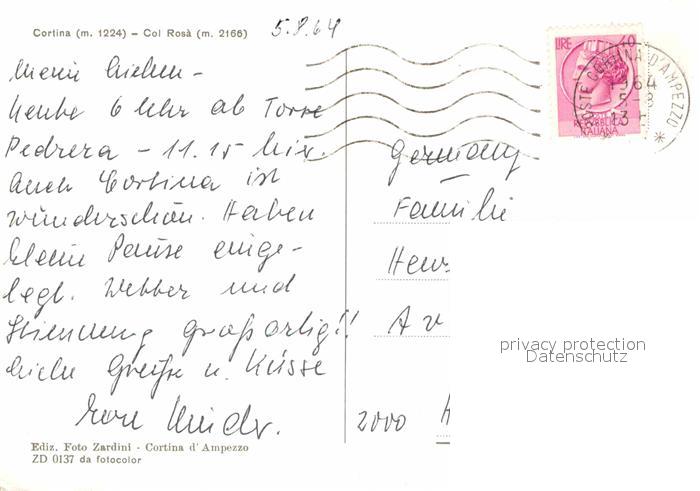 Cortina (m. 1224) – Col Rosà (m. 2166)
5.8.64
Meine Lieben –
heute 6 Uhr ab Torre
Pedrera – 11.15 hier.
Auch Cortina ist
wunderschön. Haben
kleine Pause einge-
legt. Wetter und
Stimmung großartig!!
Liebe Grüße u. Küsse
Eure Kinder.
Ediz. Foto Zardini - Cortina d'Ampezzo
ZD 0137 da fotocolor
LIRE 40
REPUBBLICA
ITALIANA
POSTE CORTINA D'AMPEZZO
1964
5-8
13
Germany
Familie
2000
privacy protection
Datenschutz